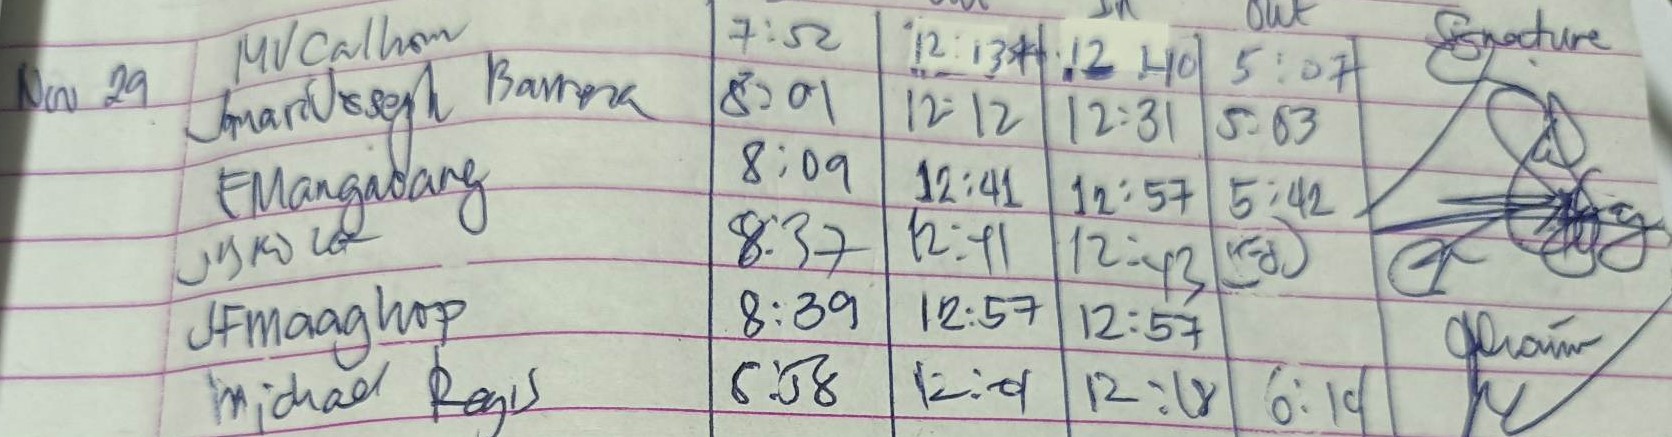 In Out Signature
MVCalhom 7:52 12:13 12 40 5:07
Nov 29 Barrera 8:01 12:12 12:31 5:03
EMangabang 8:09 12:41 12:57 5:42
8:37 12:41 12:43
JFmaaghop 8:39 12:57 12:57
Michael Regis 6:58 12:18 6:19